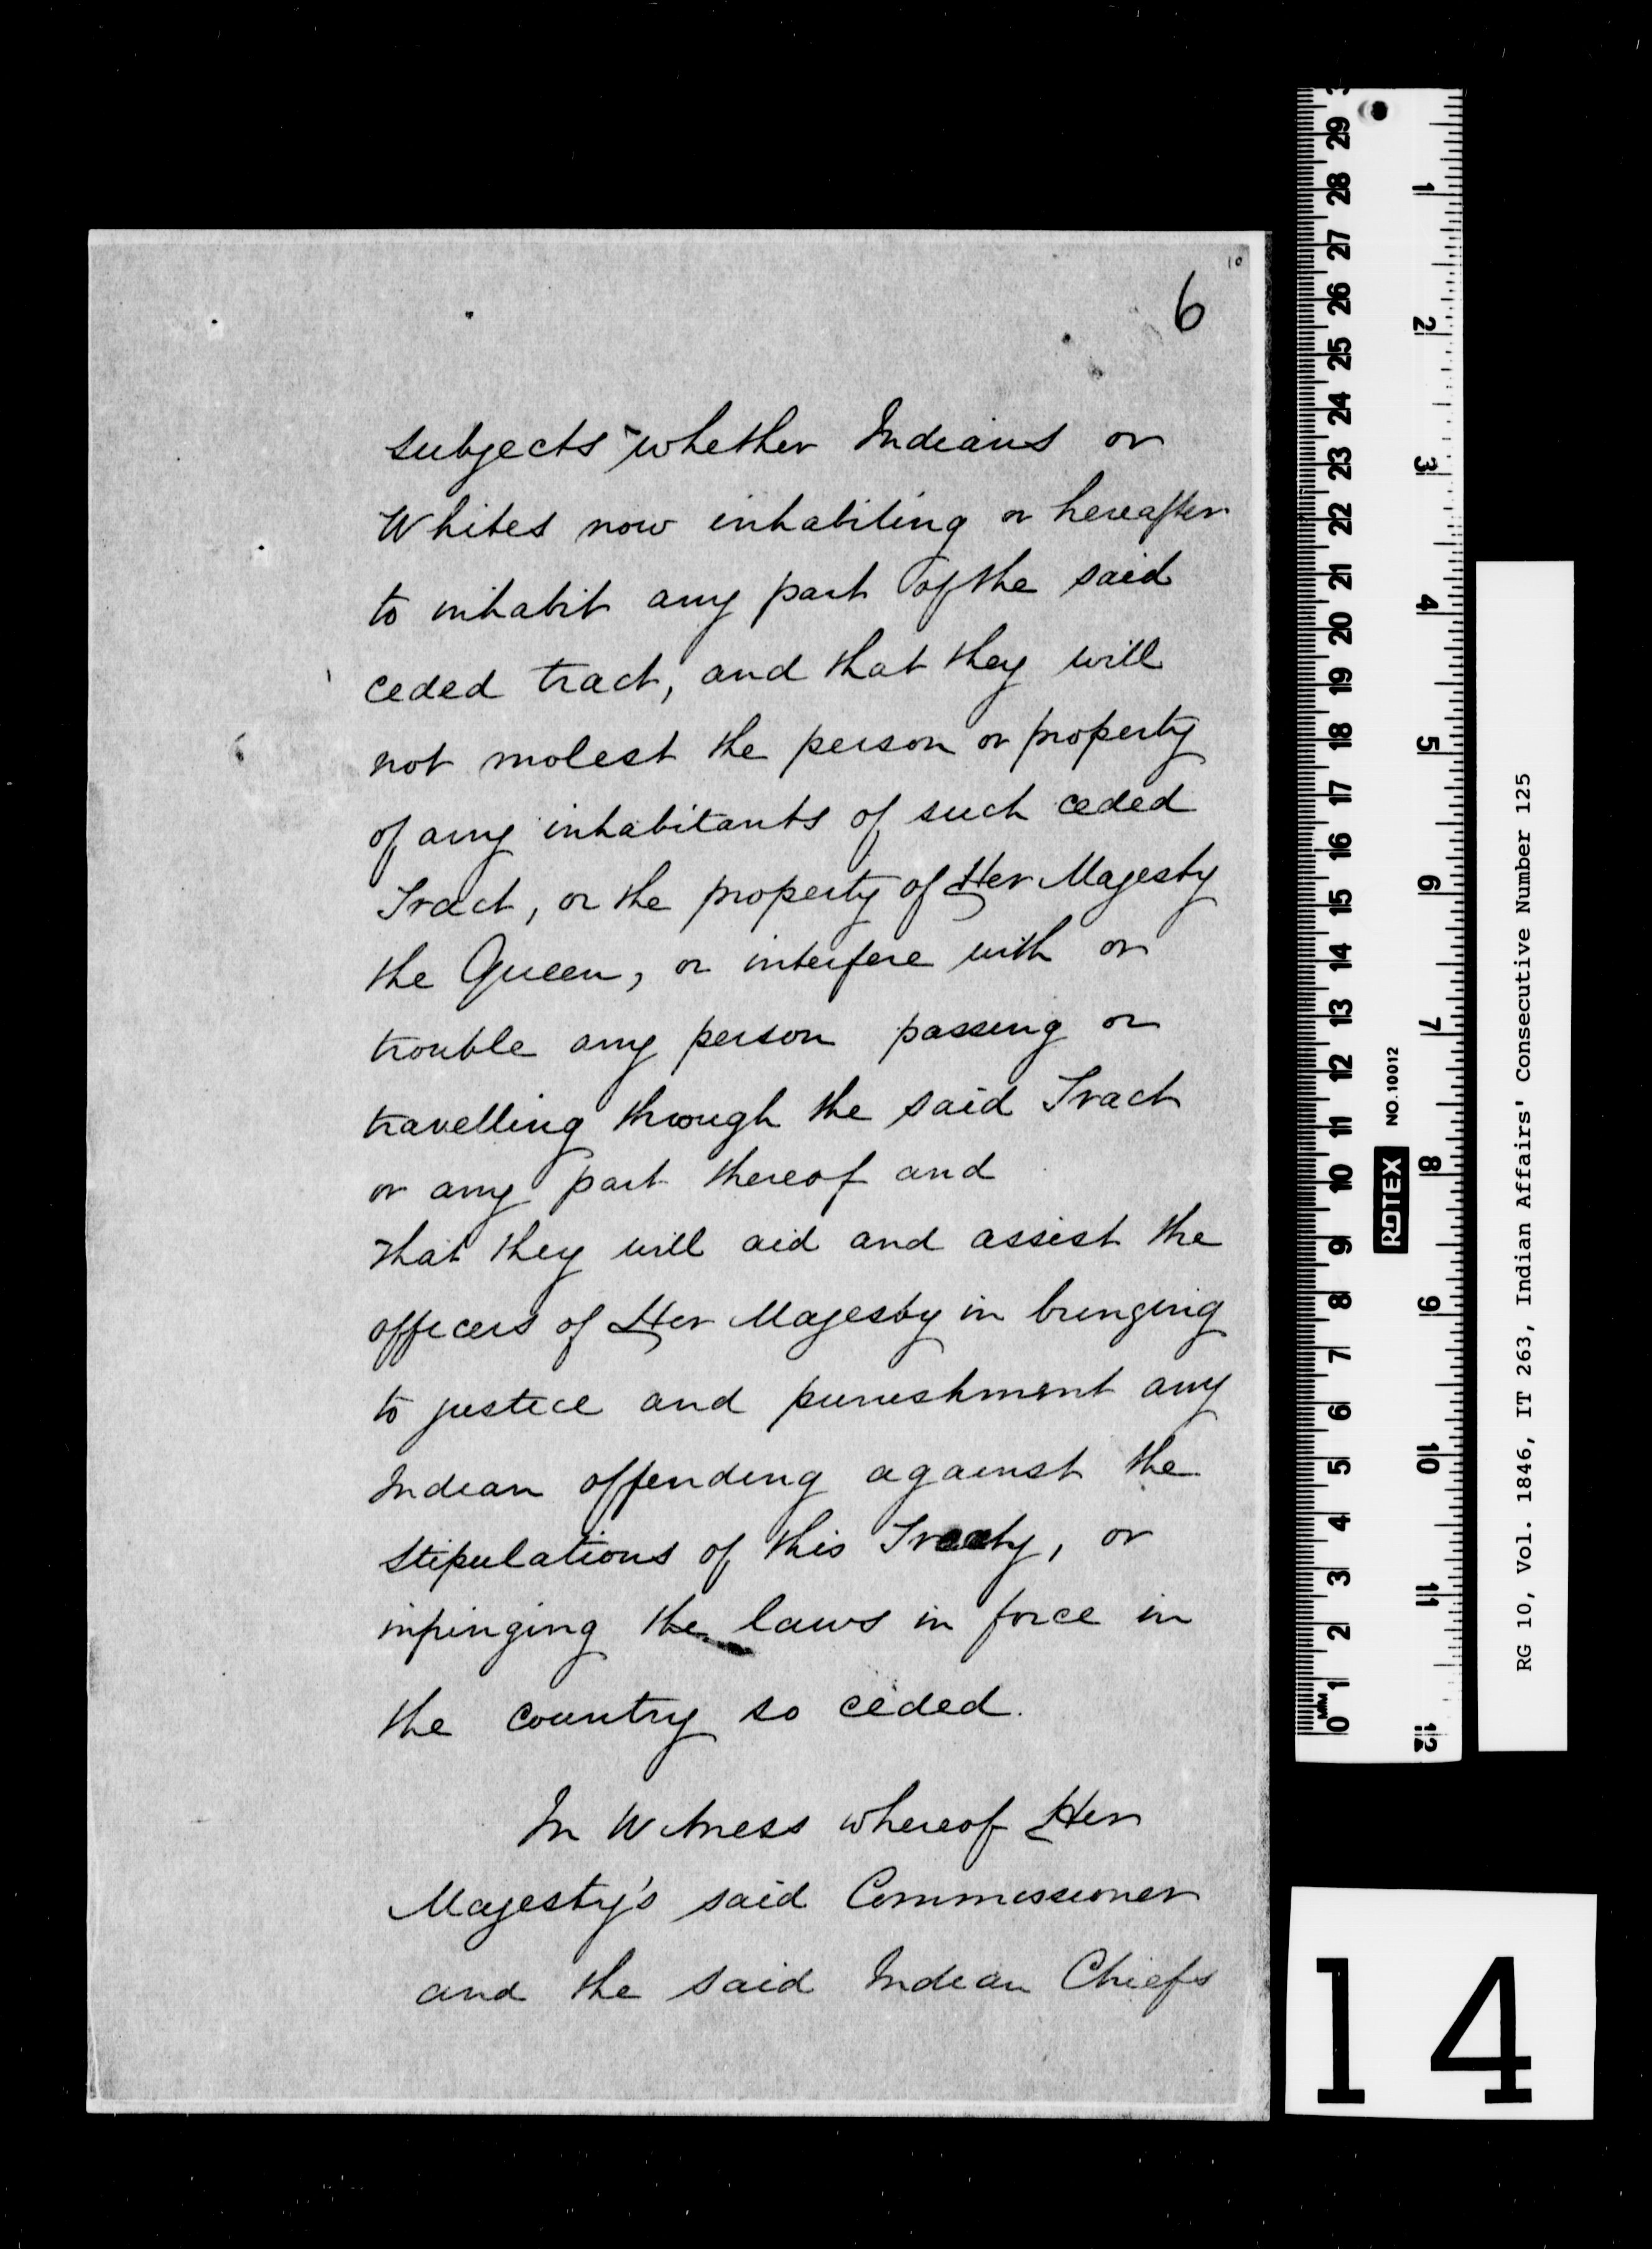 10
6
subjects whether Indians or
Whites now inhabiting or hereafter
to inhabit any part of the said
ceded tract, and that they will
not molest the person or property
of any inhabitants of such ceded
Tract, or the property of Her Majesty
the Queen, or interfere with or
trouble any person passing or
travelling through the said Tract
or any part thereof and
that they will aid and assist the
officers of Her Majesty in bringing
to justice and punishment any
Indian offending against the
stipulations of this Treaty, or
inpinging the laws in force in
the country so ceded.
In Witness whereof Her
Majesty's said Commissioner
and the said Indian Chiefs
29 28 27 26 25 24 23 22 21 20 19 18 17 16 15 14 13 12 11 10 9 8 7 6 5 4 3 2 1 0
MM
NO. 10012
ROTEX
1 2 3 4 5 6 7 8 9 10 11 12
RG 10, Vol. 1846, IT 263, Indian Affairs' Consecutive Number 125
14